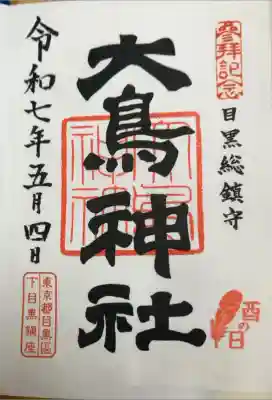 參拜記念
目黒総鎮守
大鳥神社
酉の日
令和七年五月四日
東京都目黒區
下目黒鎮座